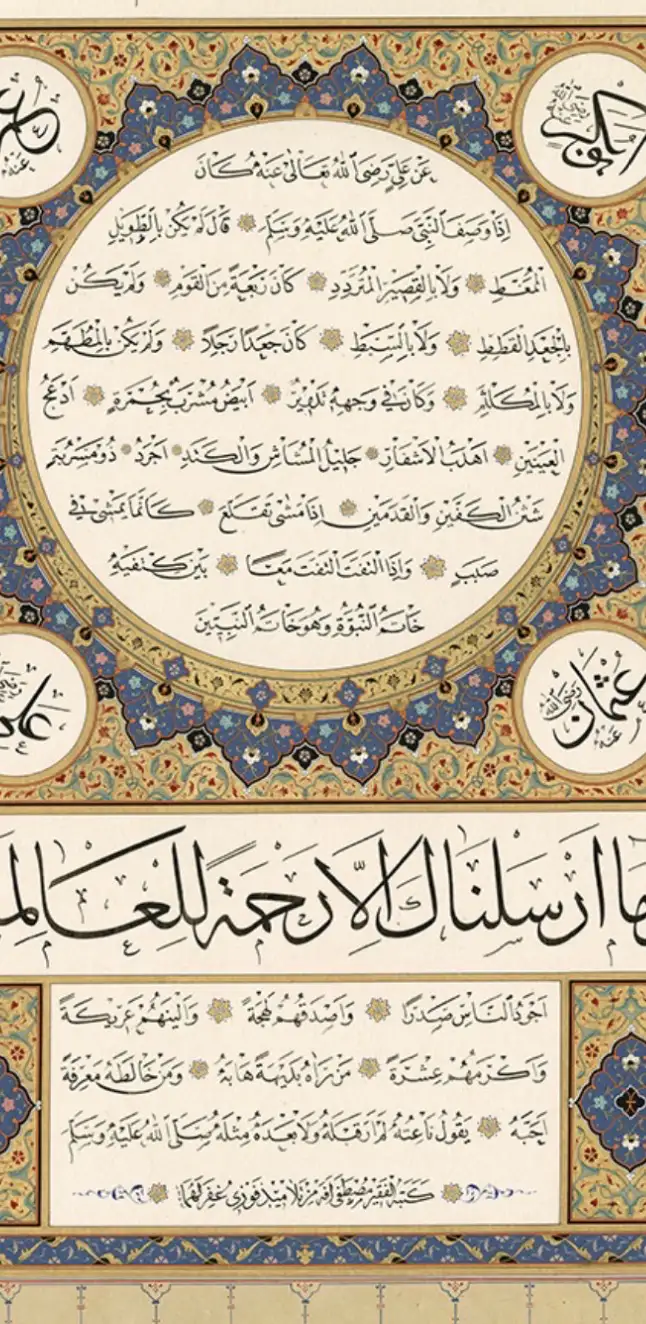 ابو بكر رضى الله عنه
عمر
عنه
عن على رضى الله تعالى عنه كان
اذا وصف النبى صلى الله عليه وسلم قال لم يكن بالطويل
الممغط ولا بالقصير المتردد كان ربعة من القوم ولم يكن
بالجعد القطط ولا بالسبط كان جعدا رجلا ولم يكن بالمطهم
ولا بالمكلثم وكان فى وجهه تدوير ابيض مشرب بحمرة ادعج
العينين اهدب الاشفار جليل المشاش والكتد اجرد ذو مسربة
شثن الكفين والقدمين اذا مشى تقلع كانما يمشى فى
صبب واذا التفت التفت معا بين كتفيه
خاتم النبوة وهو خاتم النبيين
عثمان رضى الله عنه
على
ما ارسلناك الا رحمة للعالمـ
اجود الناس صدرا واصدقهم لهجة والينهم عريكة
واكرمهم عشرة من راه بديهة هابه ومن خالطه معرفة
احبه يقول ناعته لم ار قبله ولا بعده مثله صلى الله عليه وسلم
كتبه الفقير مصطفى تلاميذ فوزى غفر لهما